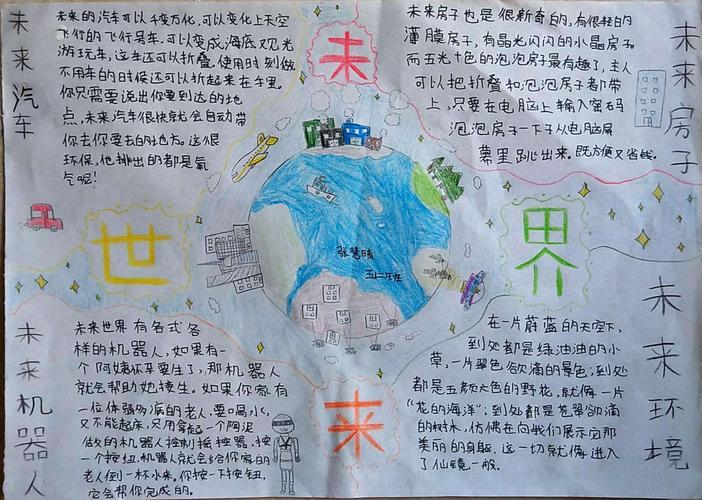 未来汽车
未来的汽车可以千变万化,可以变化上天空
飞行的飞行气车.可以变成海底观光
游玩车,这车还可以折叠.使用时刻做
不用车的时候还可以折起来在手里.
你只需要说出你要到达的地
点,未来汽车很快就会自动带
你去你要去的地方。这很
环保,他排出的都是氧
气呢!
未
未来房子也是很新奇的,有很轻的
薄膜房子,有晶光闪闪的水晶房子
而五光十色的泡泡房子最有趣了,主人
可以把折叠和泡泡房子都带
上,只要在电脑上输入密码
泡泡房子一下子从电脑屏
幕里跳出来。既方便又省钱.
未来房子
世
界
张慧晴
五二班
未来机器人
未来世界有各式各
样的机器人,如果有一
个阿姨怀孕要生了,那机器人
就会帮助她接生。如果你家有
一位体弱多病的老人,要喝水,
又不能起床,只用拿起一个陶泥
做的机器人控制摇控器.按
一个按纽,机器人就会给你家的
老人倒一杯水来。你按一下按钮,
它会帮你完成的.
来
在一片蔚蓝的天空下,
到处都是绿油油的小
草,一片翠色欲滴的景色;到处
都是五颜六色的野花,就像一片
“花的海洋”;到处都是苍翠欲滴
的树木,仿佛在向我们展示它那
美丽的身躯,这一切就像进入
了仙境一般.
未来环境